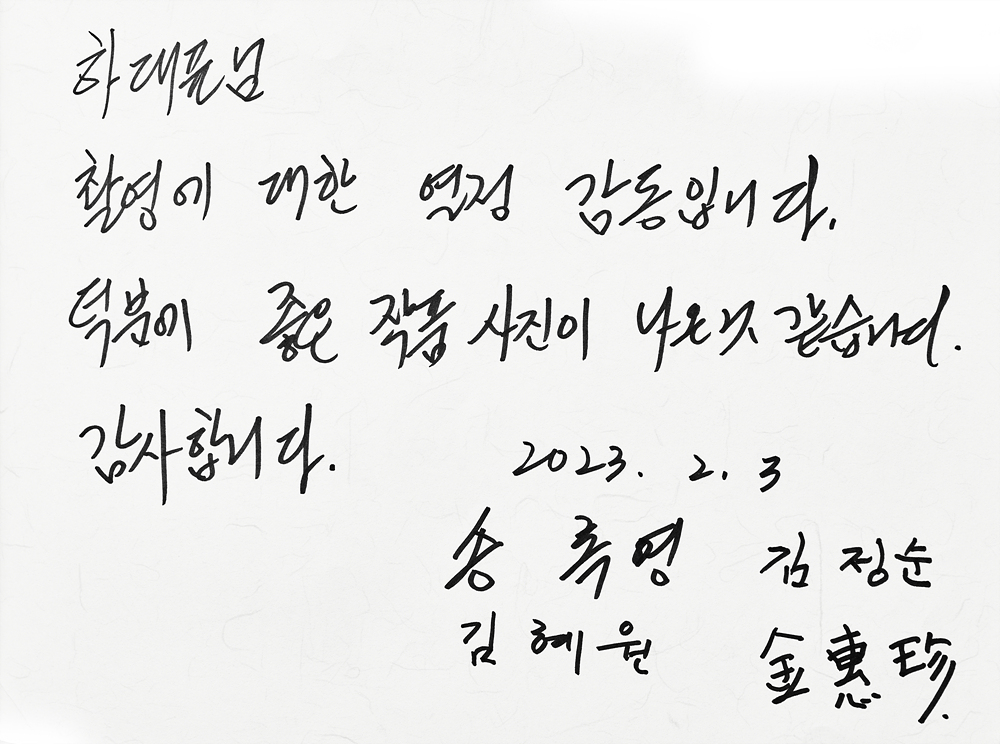 하대표님
촬영에 대한 열정 감동입니다.
덕분에 좋은 작품 사진이 나온것 같습니다.
감사합니다.
2023. 2. 3
송 록 영 김 정순
김 혜 원 金 惠 珍.